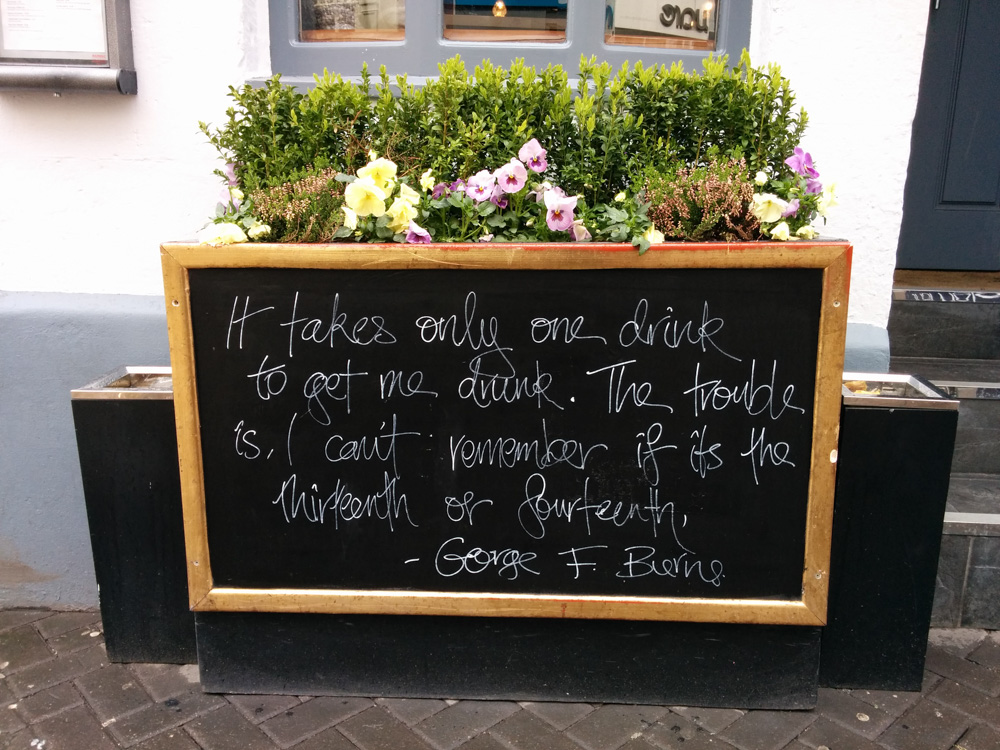 It takes only one drink
to get me drunk. The trouble
is, I can't remember if it's the
thirteenth or fourteenth.
- George F. Burns.